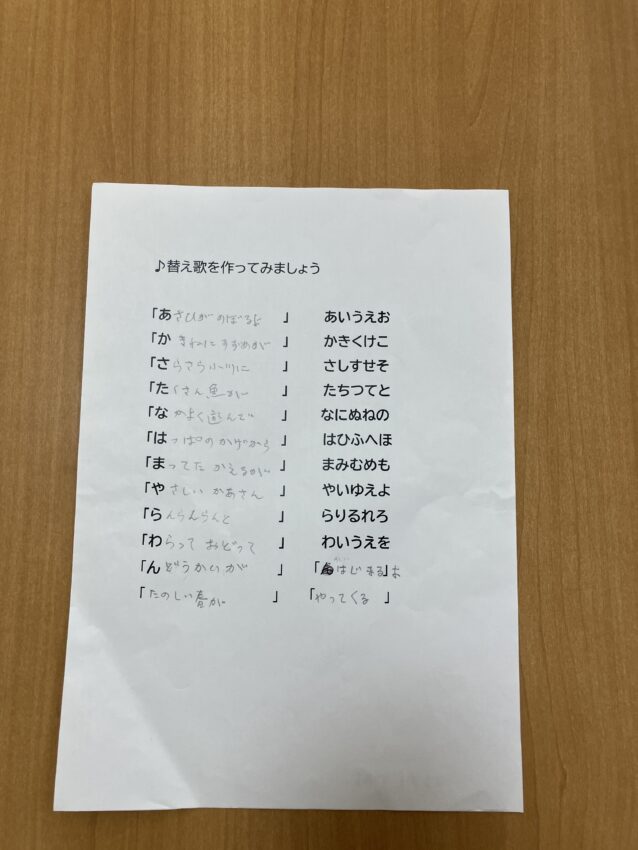 ♪替え歌を作ってみましょう
「あさひがのぼるよ 」 あいうえお
「かきねにすずめが 」 かきくけこ
「さらさら小川に 」 さしすせそ
「たくさん魚が 」 たちつてと
「なかよく遊んで 」 なにぬねの
「はっぱのかげから 」 はひふへほ
「まってた かえるが 」 まみむめも
「やさしい かあさん 」 やいゆえよ
「らんらんらんと 」 らりるれろ
「わらって おどって 」 わいうえを
「んどうかいが 」 「はじまるよ
「たのしい春が 」 「やってくる 」